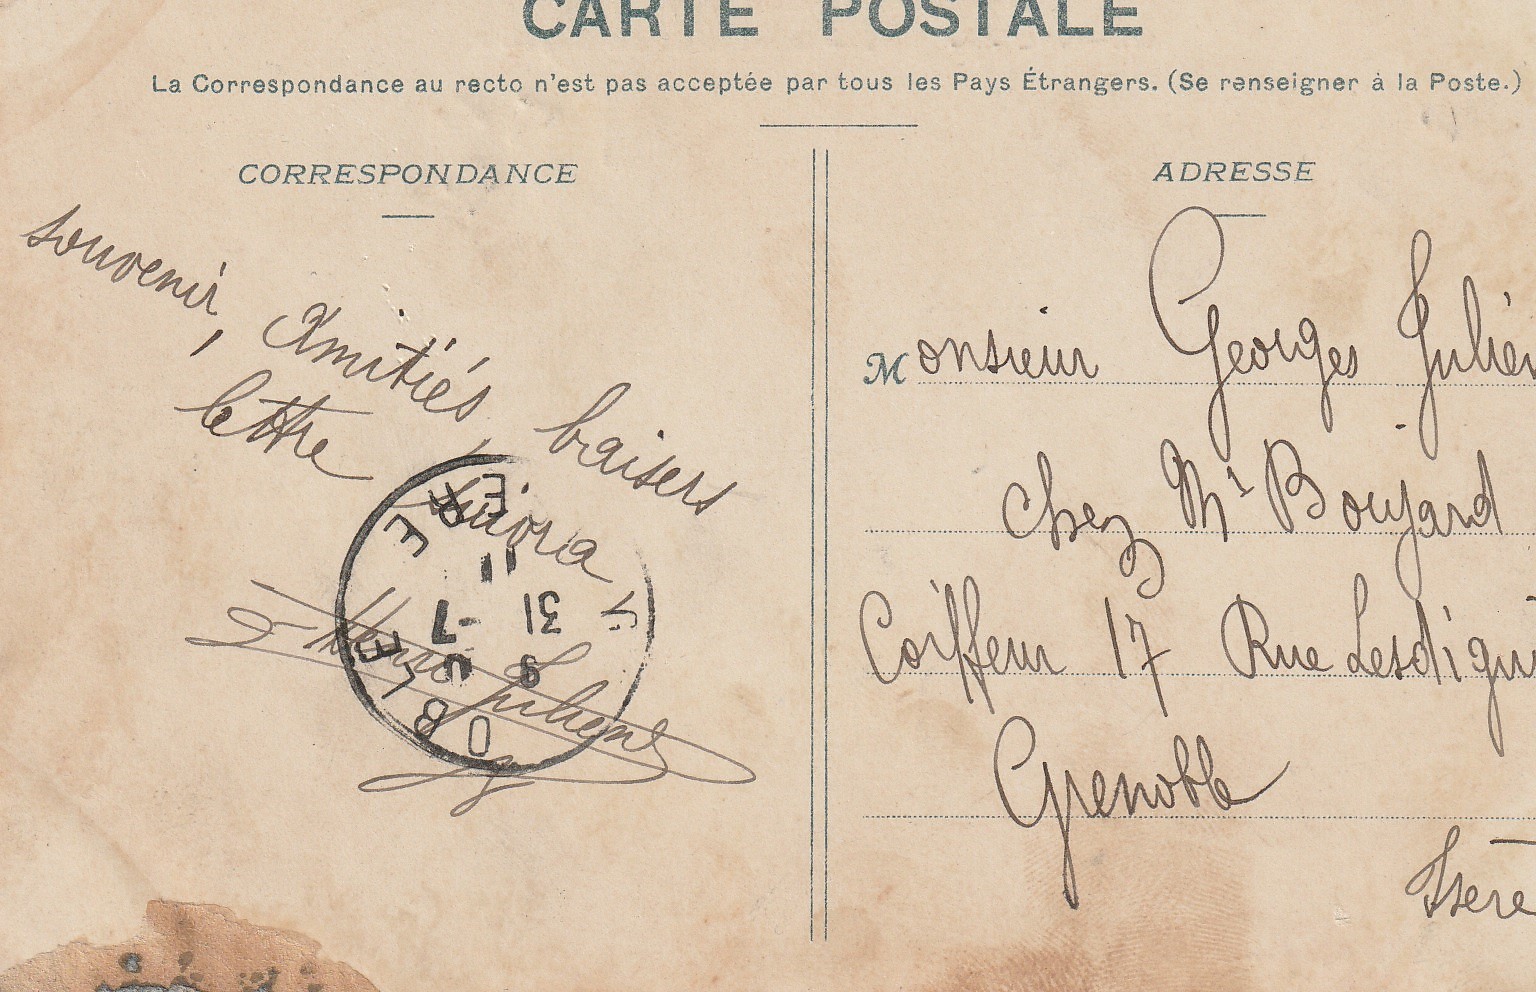 CARTE POSTALE
La Correspondance au recto n'est pas acceptée par tous les Pays Étrangers. (Se renseigner à la Poste.)
CORRESPONDANCE
souvenir, Amitiés, baisers
lettre suivra
Henri Julien
ADRESSE
Monsieur Georges Julien
chez Mr Boujard
Coiffeur 17 Rue Lesdigui
Grenoble
Isere
OBLE
ERE
11
31 -7